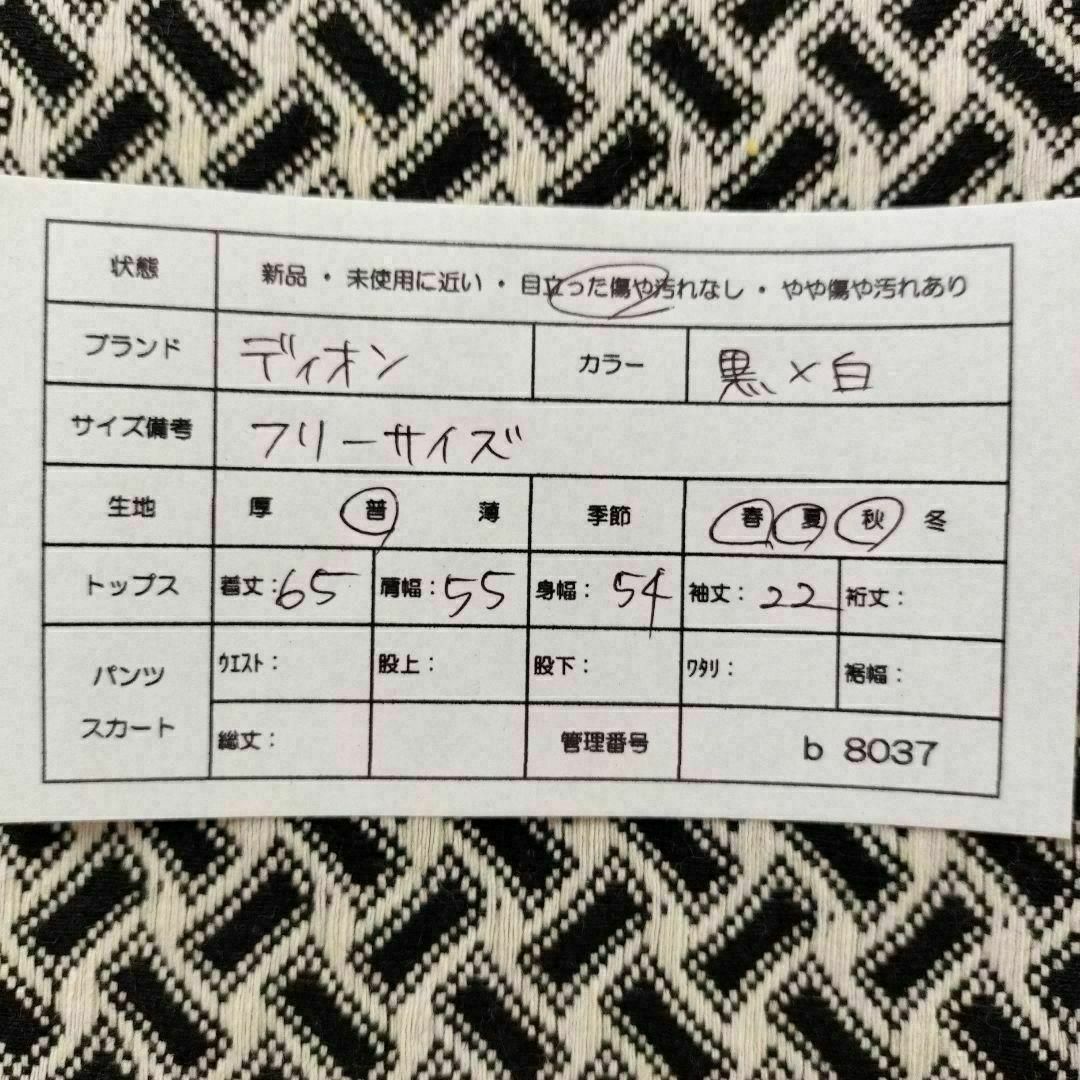 状態 新品 ・ 未使用に近い ・ 目立った傷や汚れなし ・ やや傷や汚れあり
ブランド ディオン カラー 黒×白
サイズ備考 フリーサイズ
生地 厚 普 薄 季節 春 夏 秋 冬
トップス 着丈：65 肩幅：55 身幅：54 袖丈：22 裄丈：
パンツ スカート ｳｴｽﾄ： 股上： 股下： ﾜﾀﾘ： 裾幅：
総丈： 管理番号 b 8037